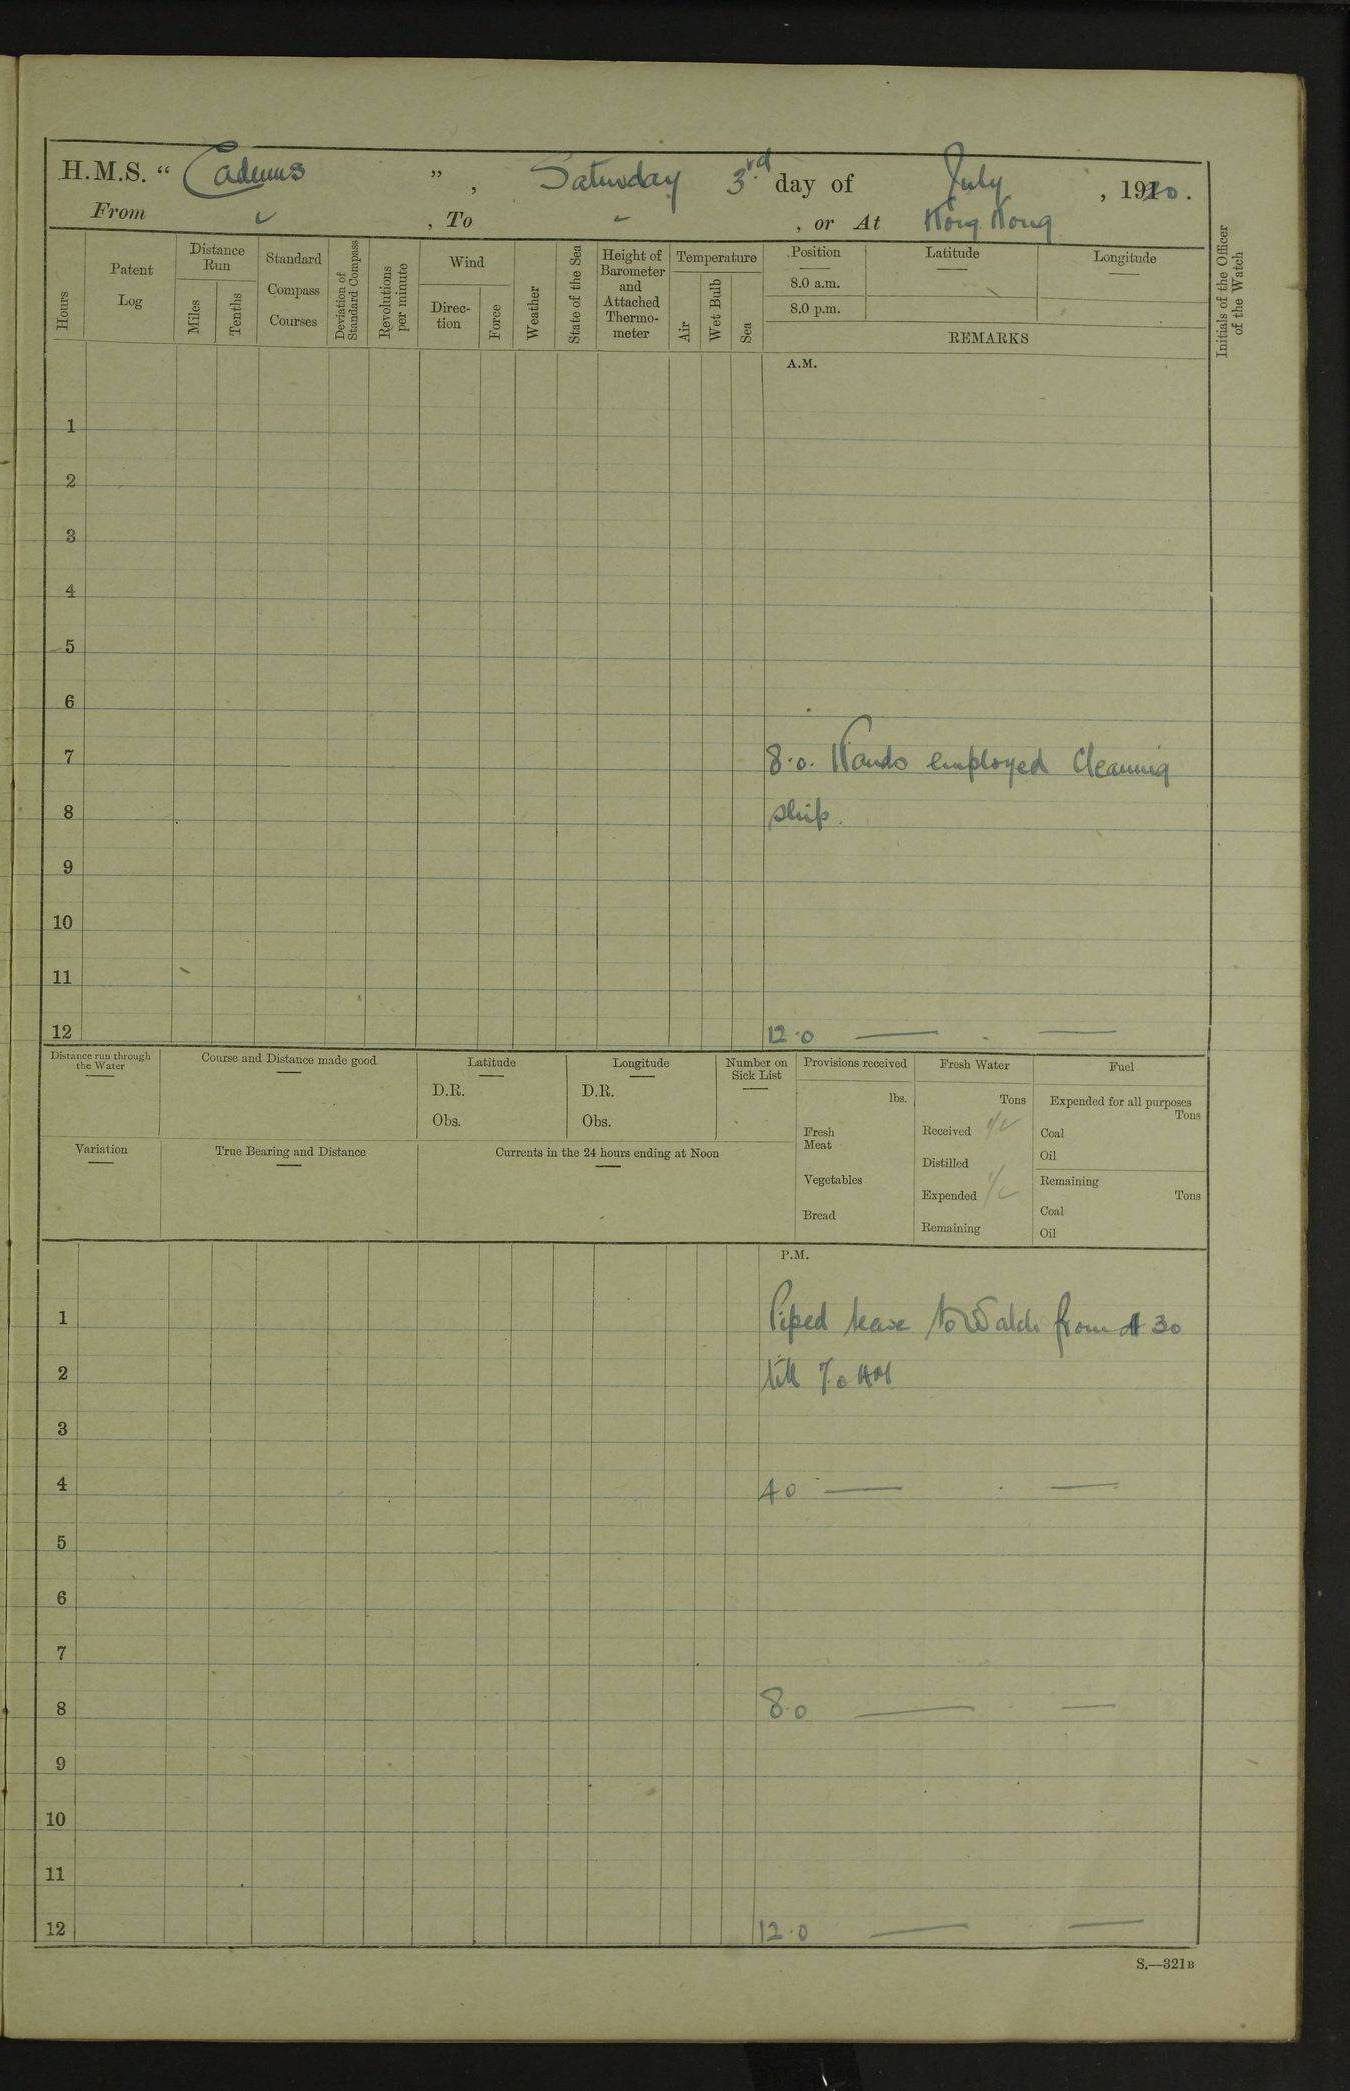 H.M.S. “ Cadmus ” , Saturday 3rd day of July , 1920.
From , To , or At Hong Kong
Hours
Patent Log
Distance Run
Miles
Tenths
Standard Compass Courses
Deviation of Standard Compass
Revolutions per minute
Wind
Direc-
tion
Force
Weather
State of the Sea
Height of Barometer and Attached Thermo-
meter
Temperature
Air
Wet Bulb
Sea
Position
Latitude
Longitude
8.0 a.m.
8.0 p.m.
REMARKS
Initials of the Officer of the Watch
A.M.
1
2
3
4
5
6
7
8.0. Hands employed Cleaning
8
ship.
9
10
11
12
12.0
Distance run through the Water
Course and Distance made good
Latitude
D.R.
Obs.
Longitude
D.R.
Obs.
Number on Sick List
Variation
True Bearing and Distance
Currents in the 24 hours ending at Noon
Provisions received
lbs.
Fresh Meat
Vegetables
Bread
Fresh Water
Tons
Received
Distilled
Expended
Remaining
Fuel
Expended for all purposes
Tons
Coal
Oil
Remaining
Tons
Coal
Oil
P.M.
1
Piped leave to Watch from 30
2
till 7.0 AM
3
4
4 0
5
6
7
8
8.0
9
10
11
12
12.0
S.—321B